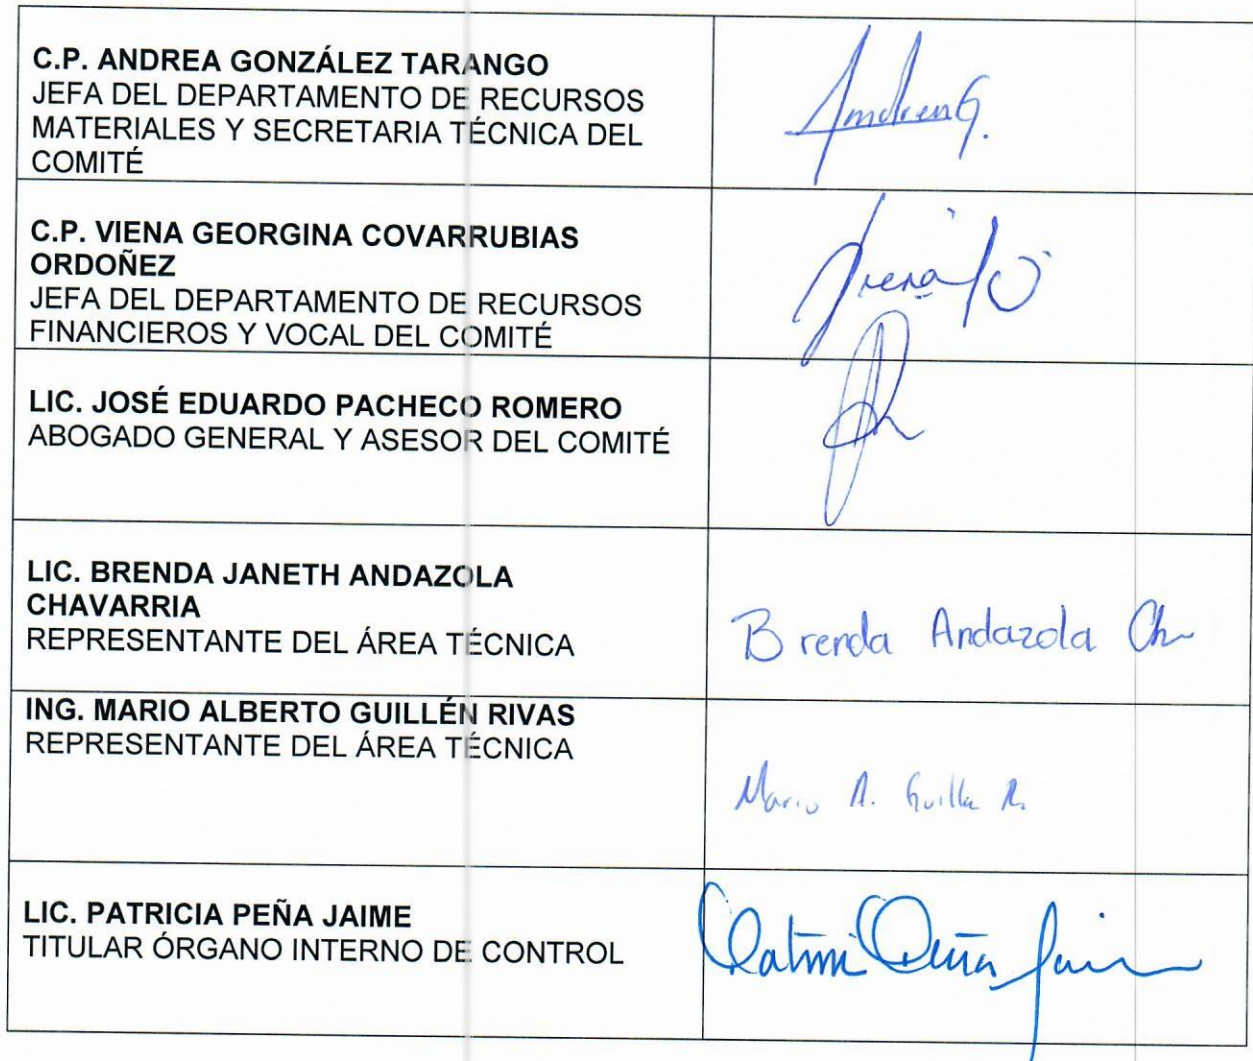 C.P. ANDREA GONZÁLEZ TARANGO
JEFA DEL DEPARTAMENTO DE RECURSOS
MATERIALES Y SECRETARIA TÉCNICA DEL
COMITÉ
AndreaG.
C.P. VIENA GEORGINA COVARRUBIAS
ORDOÑEZ
JEFA DEL DEPARTAMENTO DE RECURSOS
FINANCIEROS Y VOCAL DEL COMITÉ
LIC. JOSÉ EDUARDO PACHECO ROMERO
ABOGADO GENERAL Y ASESOR DEL COMITÉ
LIC. BRENDA JANETH ANDAZOLA
CHAVARRIA
REPRESENTANTE DEL ÁREA TÉCNICA
Brenda Andazola Ch
ING. MARIO ALBERTO GUILLÉN RIVAS
REPRESENTANTE DEL ÁREA TÉCNICA
Mario A. Guillen R.
LIC. PATRICIA PEÑA JAIME
TITULAR ÓRGANO INTERNO DE CONTROL